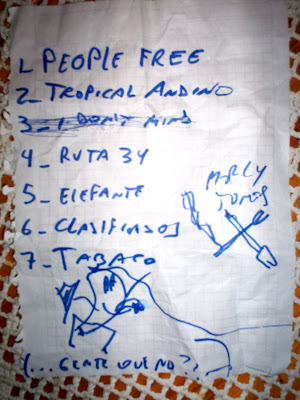 1_ PEOPLE FREE
2_ TROPICAL ANDINO
3_ I DONT MIND
4_ RUTA 34
5_ ELEFANTE
6_ CLASIFICADOS
7_ TABACO
JONES
(... GENTE QUE NO??